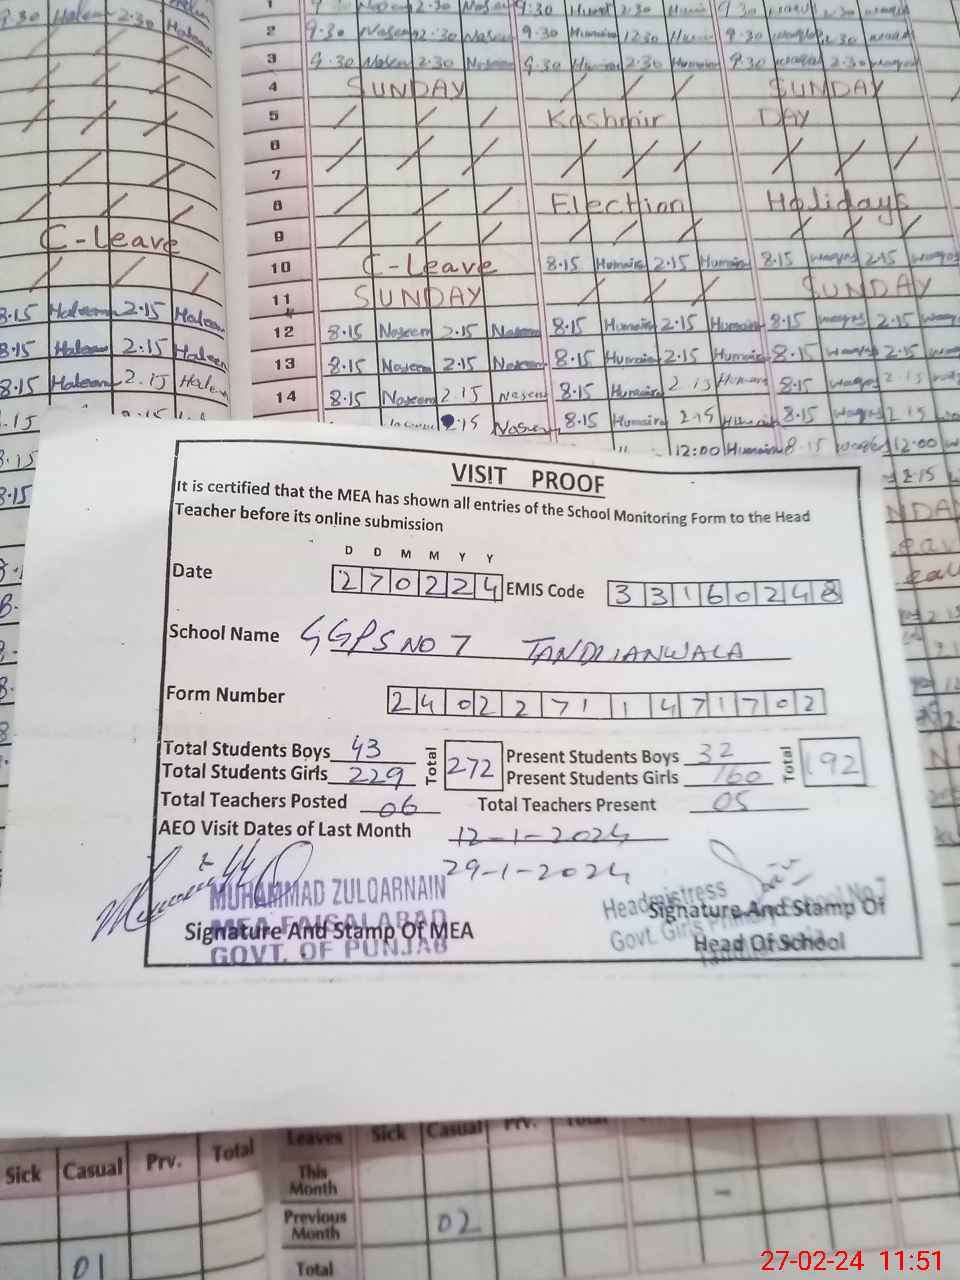 9.30 Haleem 2.30
1 9.30 Naseem 2.30 Naseem 9.30 2.30 9.30
2 9.30 Naseem 2.30 Naseem 9.30 Humaira 12.30 9.30 2.30
3 9.30 Naseem 2.30 Naseem 9.30 Humaira 2.30 Humaira 9.30 waqas 2.30 waqas
4 SUNDAY SUNDAY
5 Kashmir DAY
6
7
8 Election Holidays
9
C-Leave
10 C-Leave 8.15 Humaira 2.15 Humaira 8.15 waqas 2.15 waqas
11 SUNDAY SUNDAY
8.15 Haleem 2.15 Haleem
12 8.15 Naseem 2.15 Naseem 8.15 Humaira 2.15 Humaira 8.15 waqas 2.15
8.15 Haleem 2.15 Haleem
13 8.15 Naseem 2.15 Naseem 8.15 Humaira 2.15 Humaira 8.15 waqas 2.15
8.15 Haleem 2.15 Haleem
14 8.15 Naseem 2.15 Naseem 8.15 Humaira 2.15 Humaira 8.15 waqas 2.15
2.15 Naseem 8.15 Humaira 2.15 Humaira 8.15 waqas 2.15
12:00 Humaira 8.15 waqas 12:00
2.15
VISIT PROOF
It is certified that the MEA has shown all entries of the School Monitoring Form to the Head
Teacher before its online submission
D D M M Y Y
Date 270224 EMIS Code 33160248
School Name GGPS NO 7 TANDLIANWALA
Form Number 24022711471702
Total Students Boys 43 Total 272 Present Students Boys 32 Total 192
Total Students Girls 229 Present Students Girls 160
Total Teachers Posted 06 Total Teachers Present 05
AEO Visit Dates of Last Month 12-1-2024
29-1-2024
MUHAMMAD ZULQARNAIN
MEA FAISALABAD
GOVT. OF PUNJAB
Signature And Stamp Of MEA
Headmistress
Govt. Girls Primary School No.7
Signature And Stamp Of
Head Of School
Sick Casual Prv. Total
01
Leaves Sick Casual Prv. Total
This Month -
Previous Month 02
Total
27-02-24 11:51